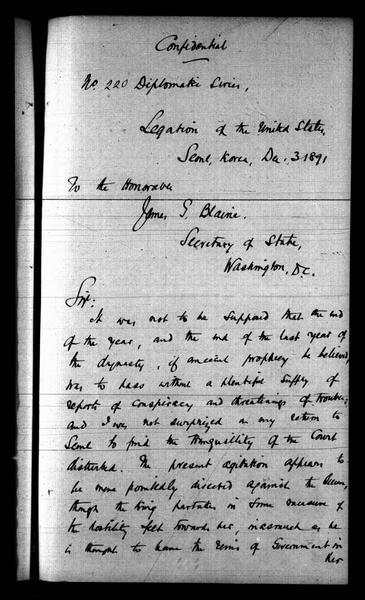 Confidential
No. 220 Diplomatic Series,
Legation of the United States,
Seoul, Korea, Dec. 3 1891
To the Honorable
James G. Blaine.
Secretary of State,
Washington, D.C.
Sir:
It was not to be supposed that the end
of the year, and the end of the last year of
the dynasty, if ancient prophecy be believed,
was to pass without a plentiful supply of
reports of conspiracy and threatenings of trouble;
and I was not surprized on my return to
Seoul to find the tranquillity of the Court
disturbed. The present agitation appears to
be more pointedly directed against the Queen,
though the King partakes in some measure of
the hostility felt towards her, inasmuch as he
is thought to leave the reins of Government in
her